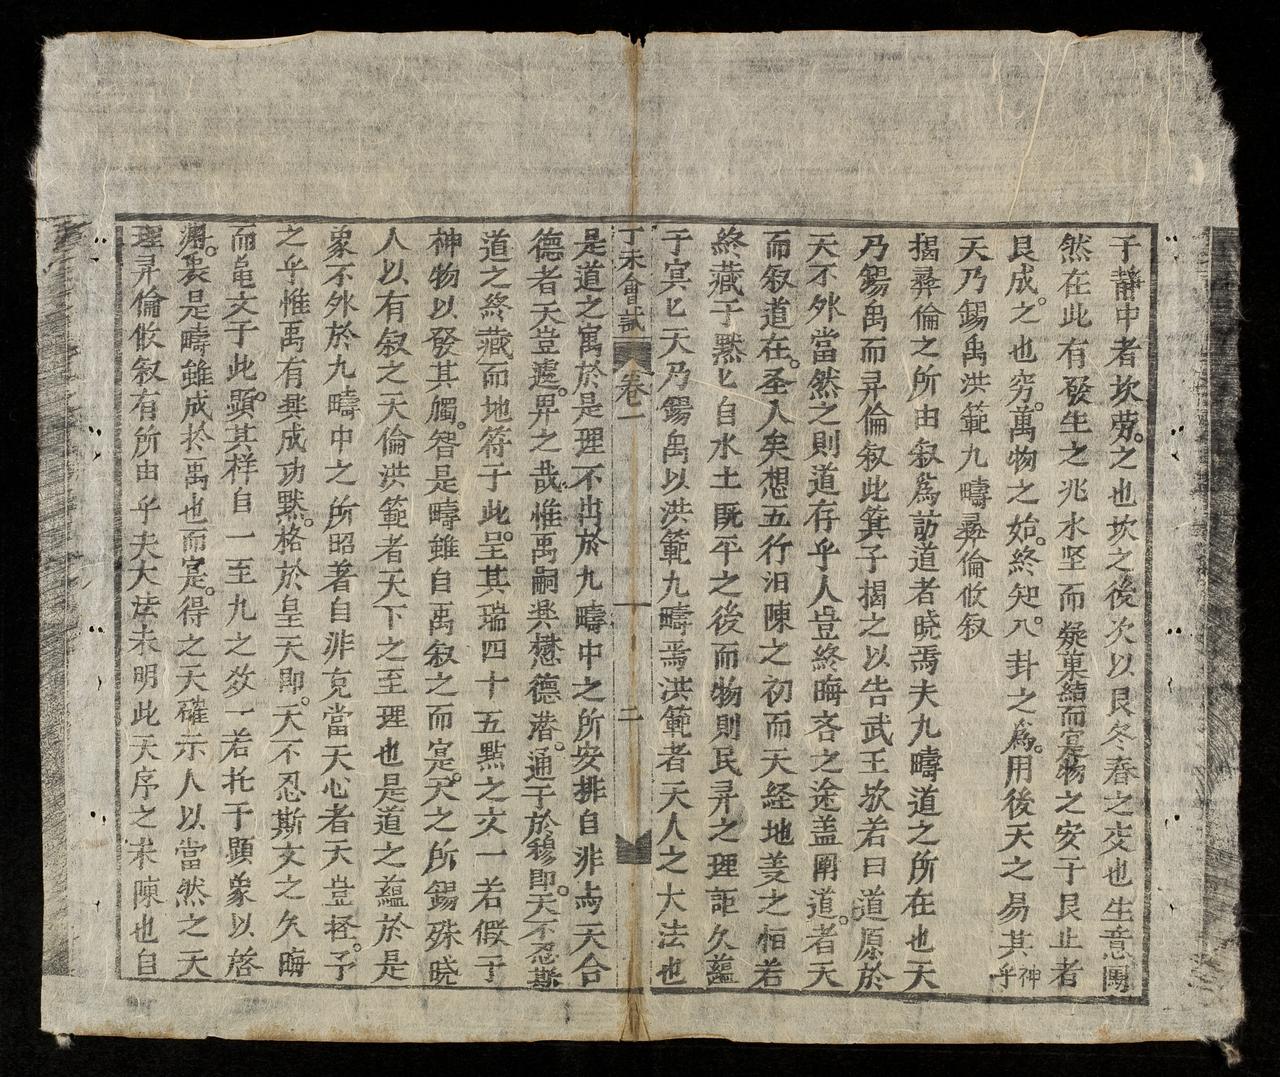 于靜中者坎勞之也坎之後次以艮冬春之交也生意闖
然在此有發生之兆水坚而凝菓結而寔物之安于艮止者
艮成之也窮萬物之始終知八卦之爲用後天之易其神乎
天乃錫禹洪範九疇彝倫攸叙
揭彝倫之所由叙爲訪道者曉焉夫九疇道之所在也天
乃錫禹而昇倫叙此箕子揭之以告武王欤若曰道原於
天不外當然之則道存乎人豈終晦吝之途盖闡道者天
而叙道在圣人矣想五行汨陳之初而天経地义之栢若
終藏于黙匕自水土既平之後而物則民昇之理詎久蘊
于冥匕天乃錫禹以洪範九疇焉洪範者天人之大法也
丁未會試 卷一 二
是道之寓於是理不出於九疇中之所安排自非与天合
德者天豈遽畀之哉惟禹嗣興懋德潜通于於穆即天不忍斯
道之終藏而地符于此呈其瑞四十五點之文一若假于
神物以發其觸智是疇雖自禹叙之而寔天之所錫殊晓
人以有叙之天倫洪範者天下之至理也是道之蘊於是
象不外於九疇中之所昭著自非克當天心者天豈轻予
之乎惟禹有興成功黙格於皇天即天不忍斯文之久晦
而亀文于此顕其样自一至九之效一若托于顕象以啓
淵衷是疇雖成於禹也而寔得之天確示人以當然之天
理昇倫攸叙有所由乎夫大法未明此天序之未陳也自